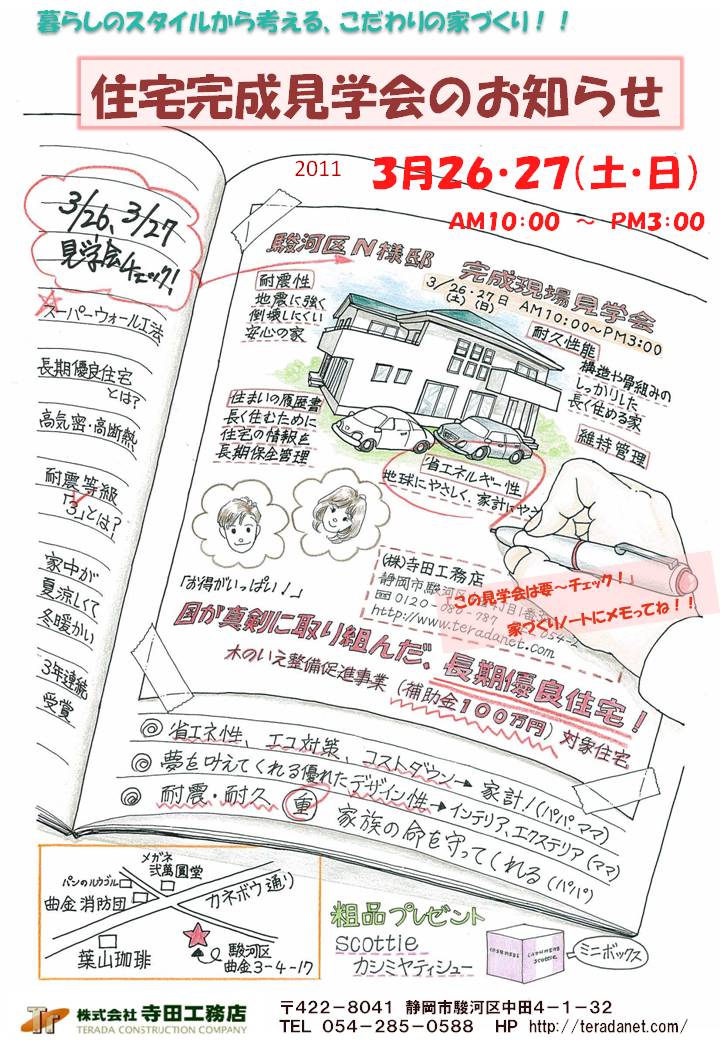 暮らしのスタイルから考える、こだわりの家づくり！！
住宅完成見学会のお知らせ
2011 3月26・27(土・日)
AM10:00 ～ PM3:00
3/26、3/27
見学会チェック！
スーパーウォール工法
長期優良住宅
とは？
高気密・高断熱
耐震等級
「3」とは？
家中が
夏涼しくて
冬暖かい
3年連続
受賞
駿河区N様邸 完成現場見学会
3/26・27日 AM10:00～PM3:00
(土)(日)
耐震性
地震に強く
倒壊しにくい
安心の家
耐久性能
構造や骨組みの
しっかりした
長く住める家
維持管理
住まいの履歴書
長く住むために
住宅の情報を
長期保金管理
省エネルギー性
地球にやさしく、家計にやさ
(株)寺田工務店
静岡市駿河区
0120-
http://www.teradanet.com
「この見学会は要～チェック！」
家づくりノートにメモってね！！
「お得がいっぱい！」
国が真剣に取り組んだ、長期優良住宅！
木のいえ整備促進事業 (補助金100万円)対象住宅
◎省エネ性、エコ対策、コストダウン→家計！(パパ、ママ)
◎夢を叶えてくれる優れたデザイン性→インテリア、エクステリア(ママ)
◎耐震・耐久 重 家族の命を守ってくれる(パパ)
メガネ
弐萬圓堂
パンのルカゴル
曲金消防団
カネボウ通り
葉山珈琲
駿河区
曲金3-4-17
粗品プレゼント
scottie
カシミヤティシュー
CASHMERE
SCOTTIE
ミニボックス
Tr 株式会社 寺田工務店
TERADA CONSTRUCTION COMPANY
〒422－8041 静岡市駿河区中田4－1－32
TEL 054－285－0588 HP http://teradanet.com/